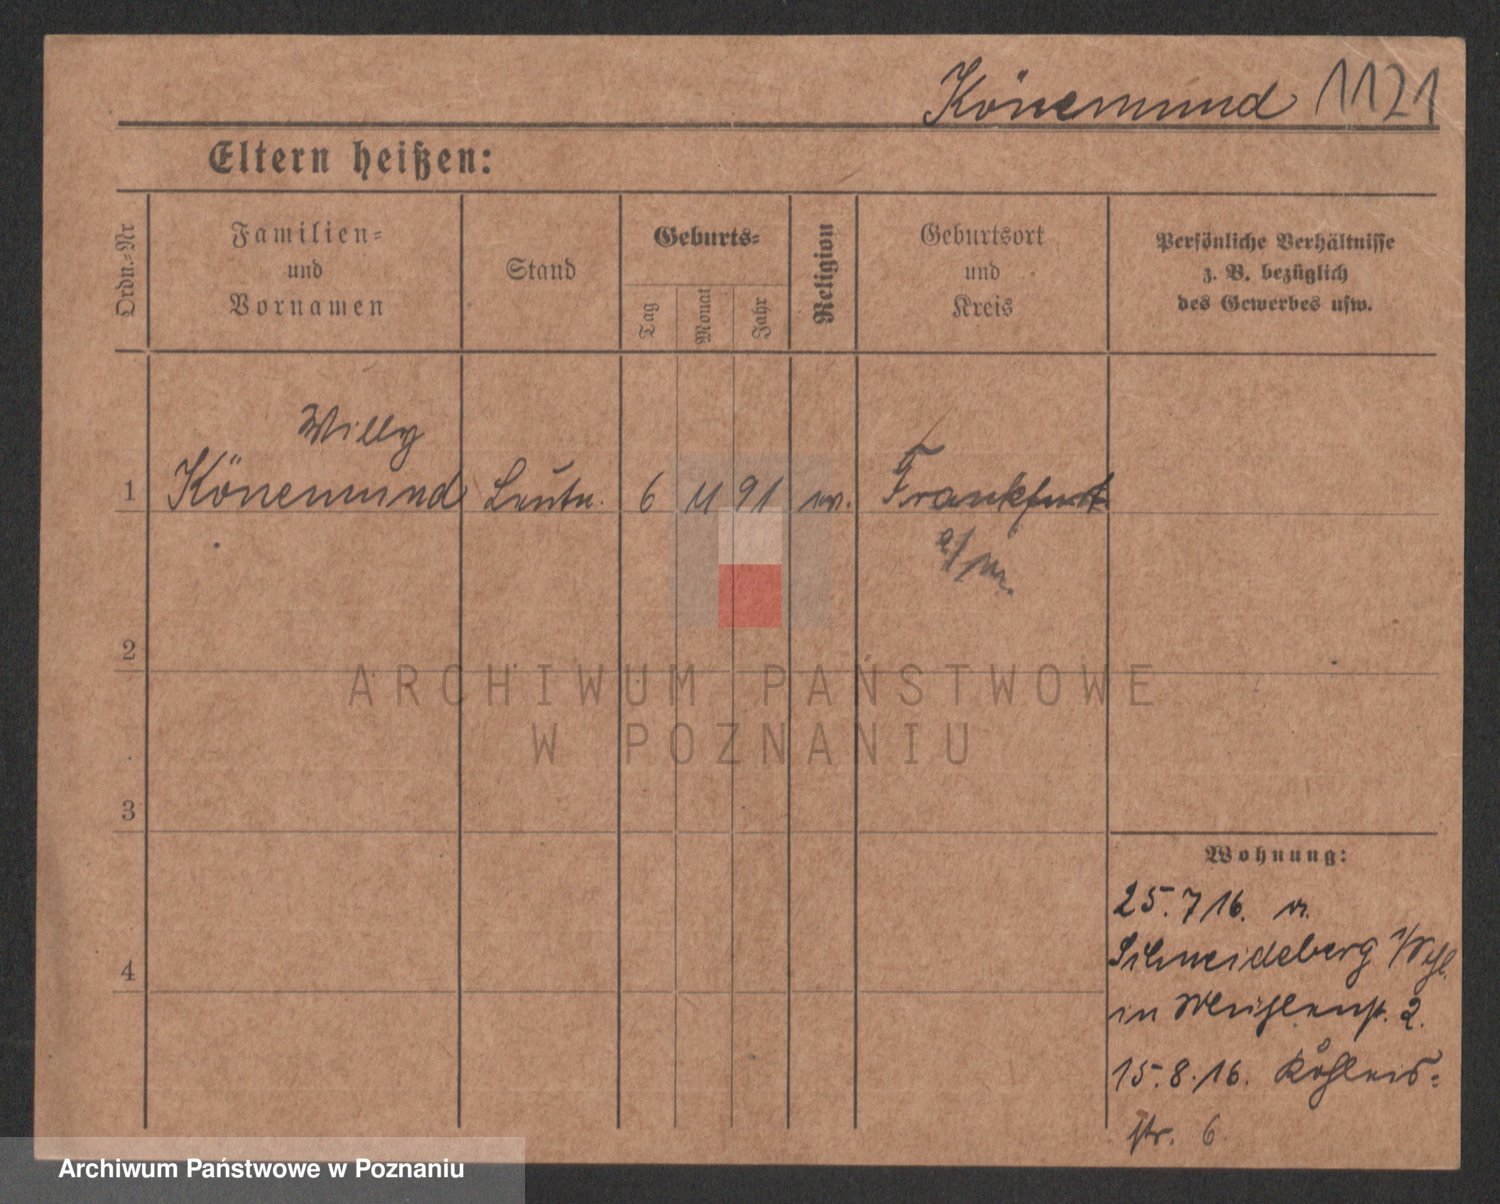 Könemund 1121
Eltern heißen:
Ordn.-Nr
Familien-
und
Vornamen
Stand
Geburts-
Tag
Monat
Jahr
Religion
Geburtsort
und
Kreis
Persönliche Verhältnisse
z. B. bezüglich
des Gewerbes usw.
Willy
1 Könemund Leutn. 6 11 91 ev. Frankfurt
a/M.
2
ARCHIWUM PAŃSTWOWE
W POZNANIU
3
Wohnung:
25.7.16. v.
Schneideberg
4
in Mühlenst. 2.
15.8.16.
str. 6
Archiwum Państwowe w Poznaniu